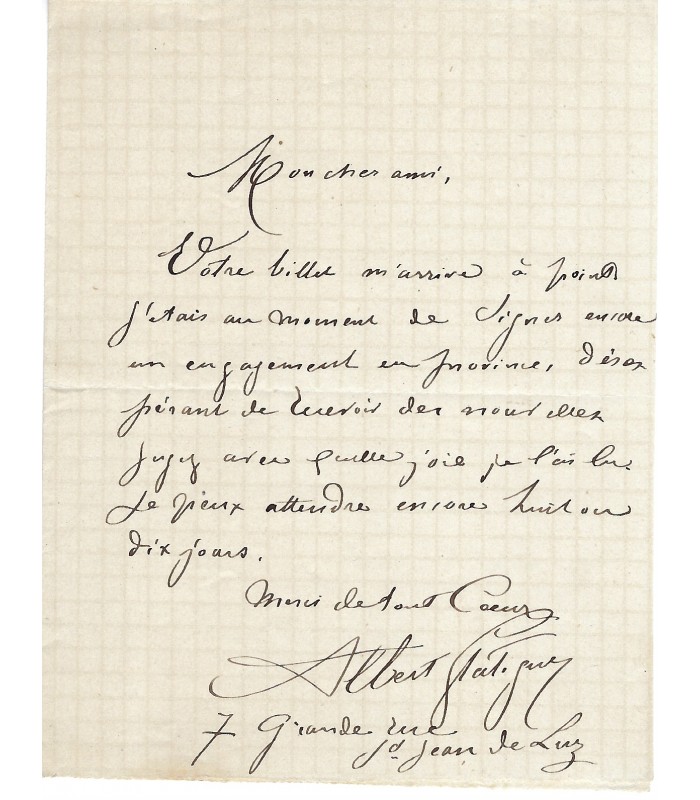 Mon cher ami,
Votre billet m'arrive à point
j'etais au moment de signer encore
un engagement en province, déses
pérant de recevoir des nouvelles
jugez avec quelle joie je l'ai lu.
Je peux attendre encore huit ou
dix jours.
Merci de tout Coeur
Albert Glatigny
7 Grande rue
St Jean de Luz